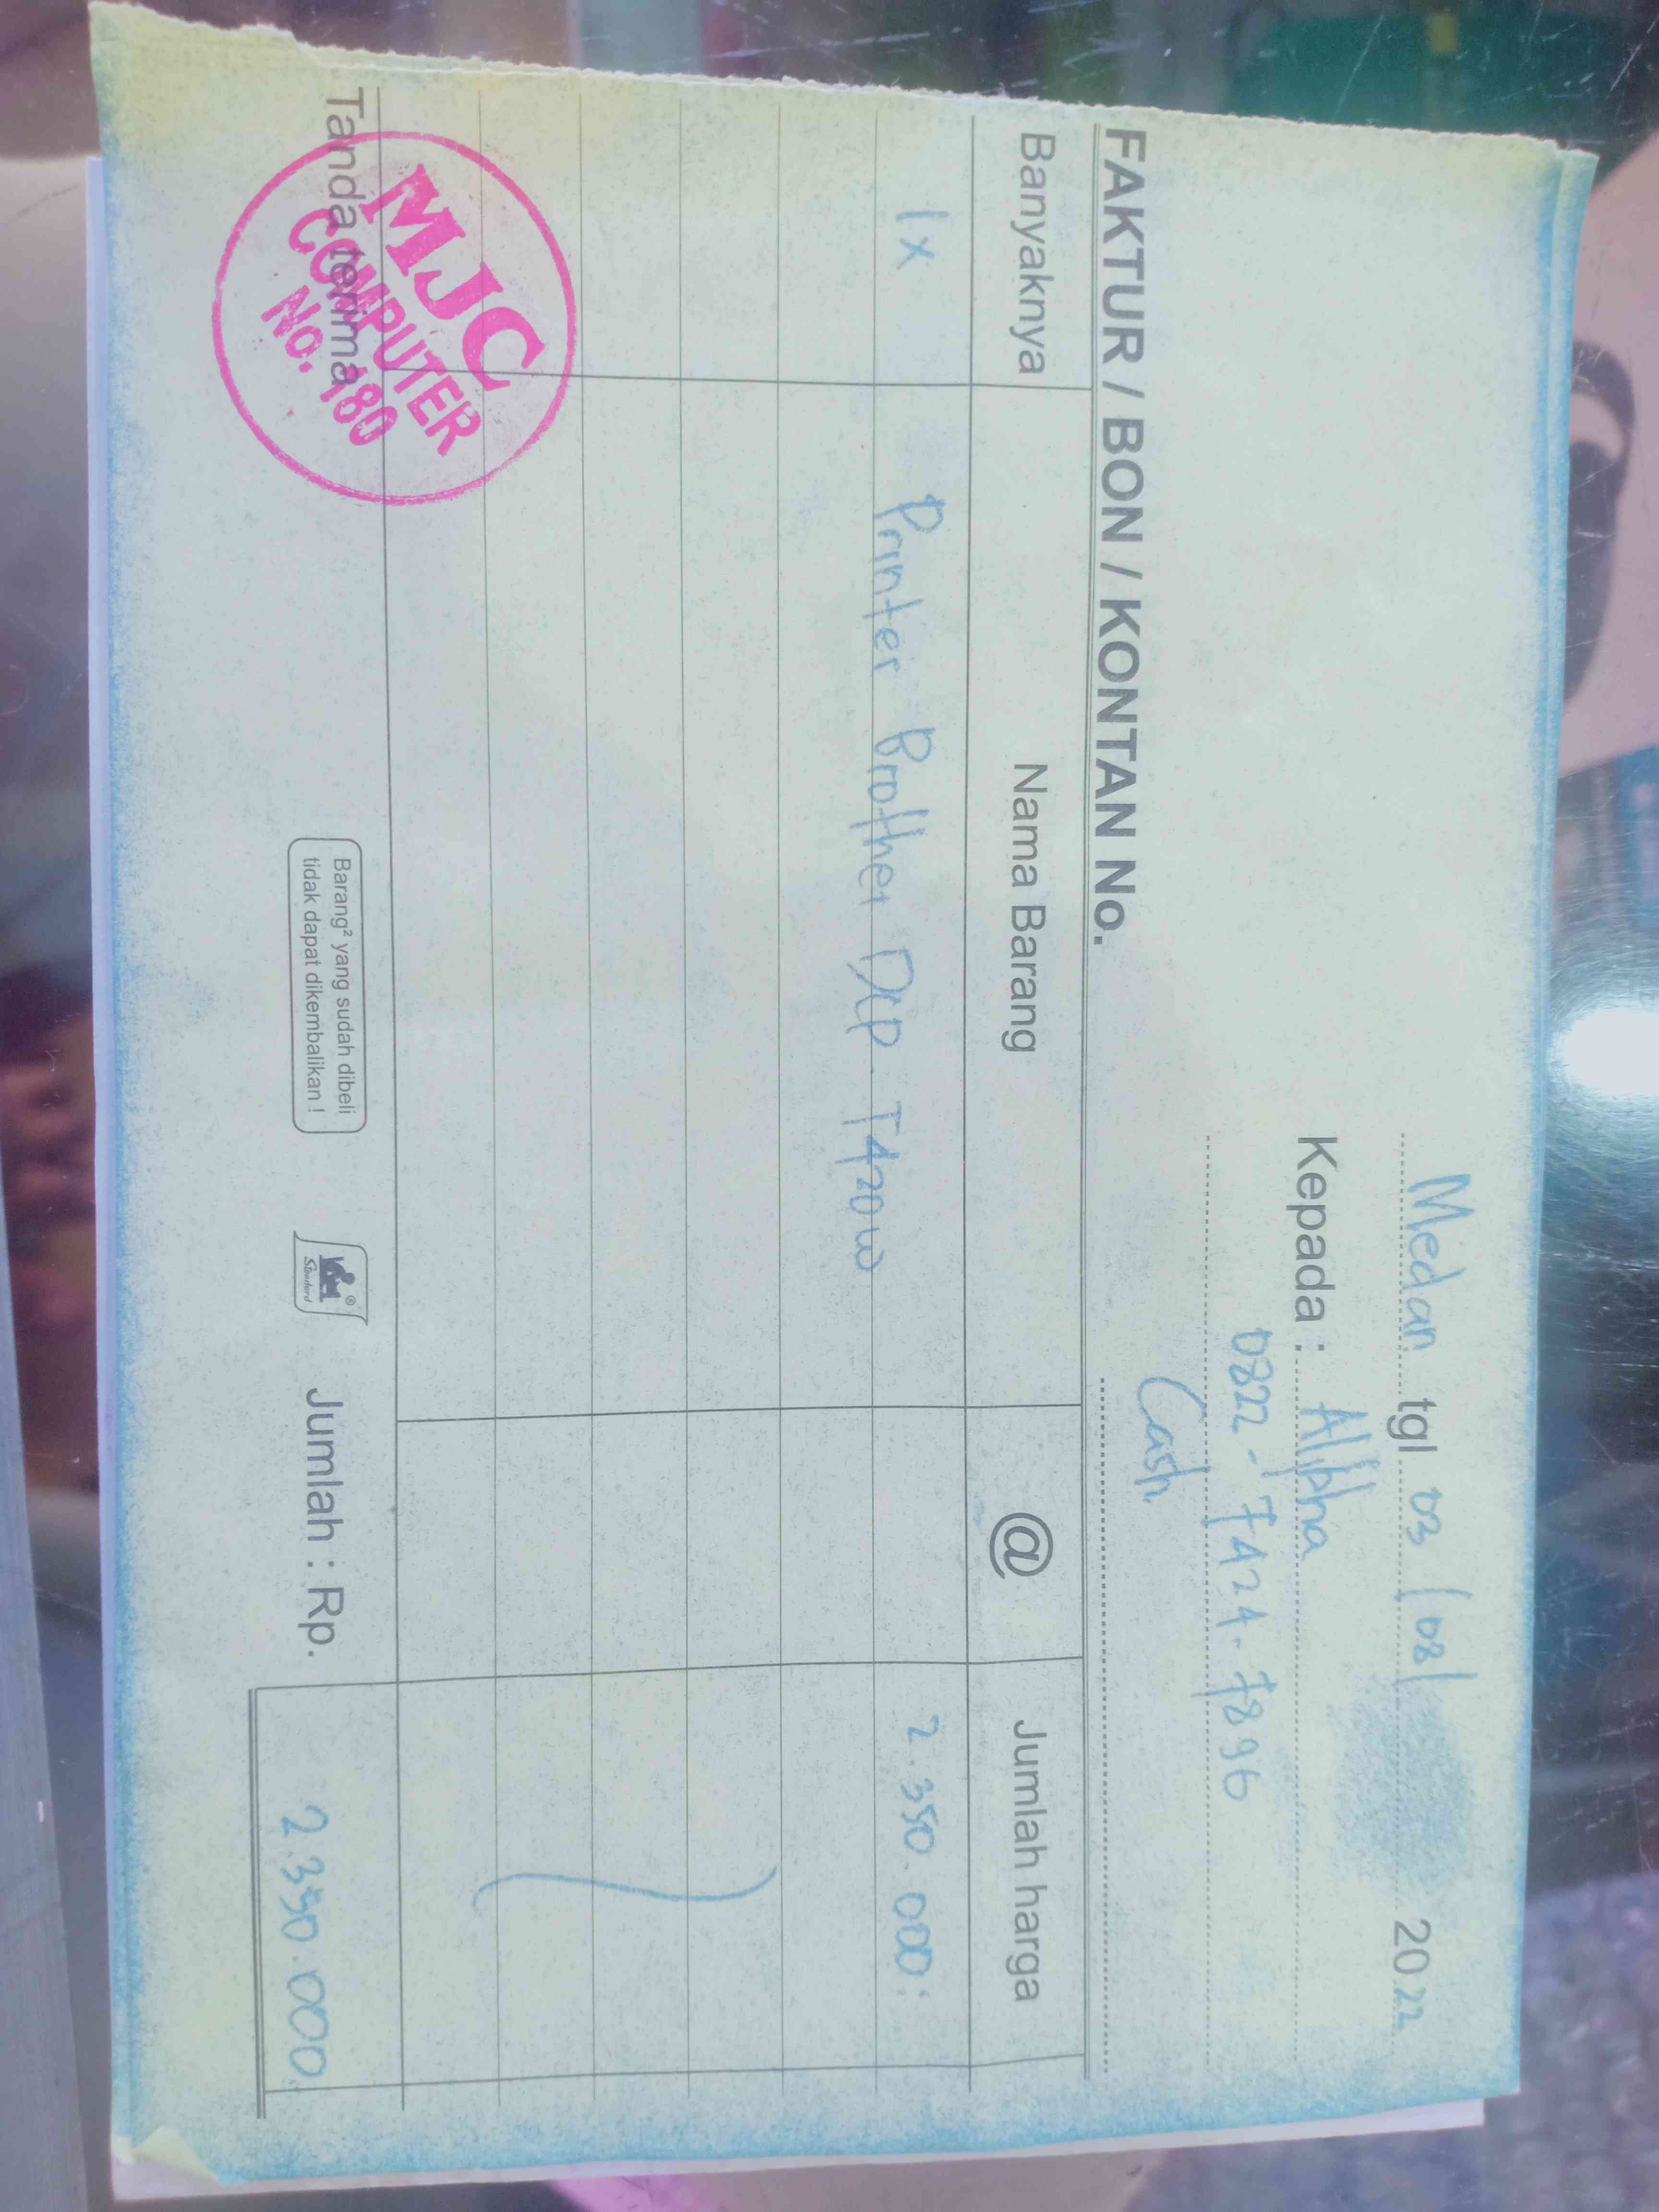 Medan tgl 03/08/ 2022
Kepada : Alpha
0822-7424-7896
Cash
FAKTUR / BON / KONTAN No.
Banyaknya Nama Barang @ Jumlah harga
1x Printer Brother DCP-T420W 2.350.000
Tanda terima
MJC
COMPUTER
No. 180
Barang² yang sudah dibeli
tidak dapat dikembalikan !
Standard ®
Jumlah : Rp. 2.350.000